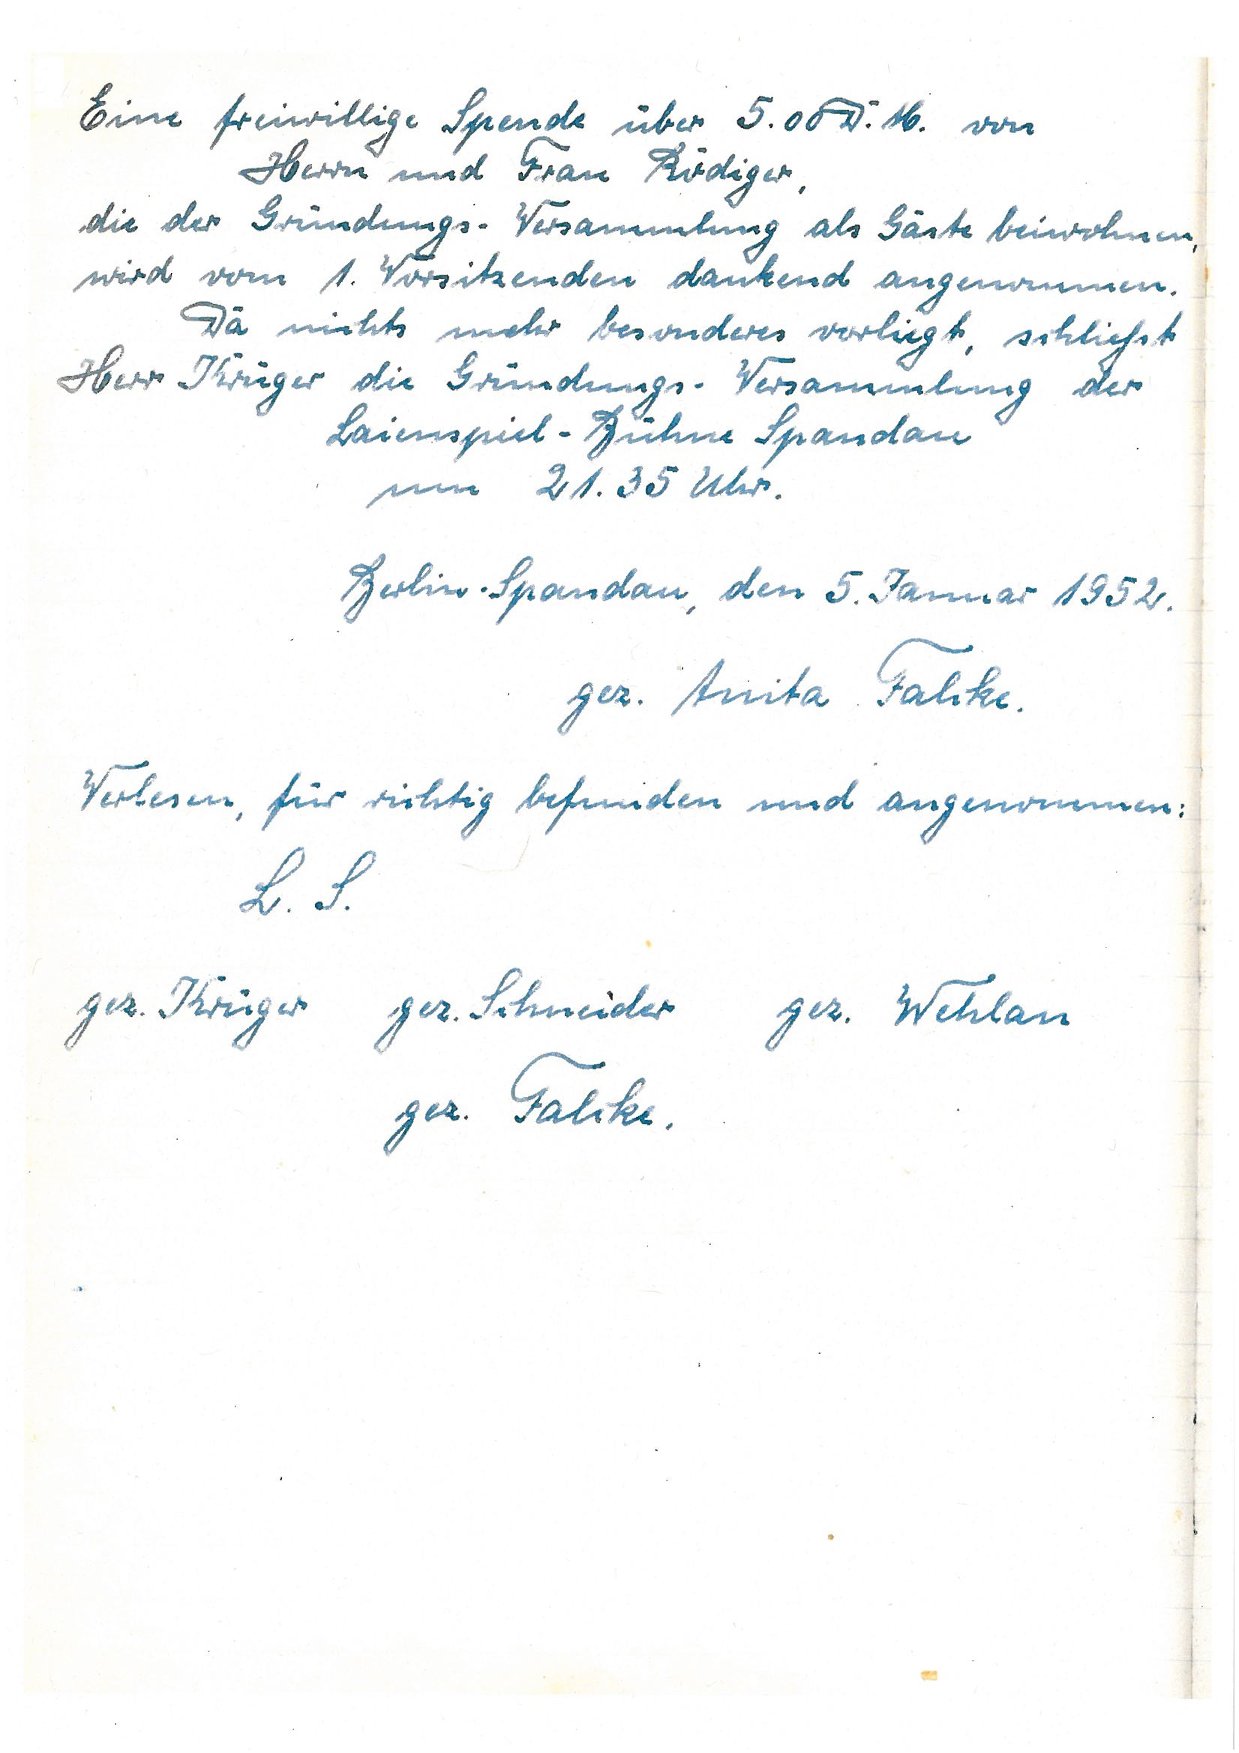 Eine freiwillige Spende über 5.00 D.M. von
Herrn und Frau Rödiger,
die der Gründungs-Versammlung als Gäste beiwohnen,
wird vom 1. Vorsitzenden dankend angenommen.
Da nichts mehr besonderes vorliegt, schließt
Herr Krüger die Gründungs-Versammlung der
Laienspiel-Bühne Spandau
um 21.35 Uhr.
Berlin-Spandau, den 5. Januar 1952.
gez. Anita Falcke.
Verlesen, für richtig befunden und angenommen:
L. S.
gez. Krüger gez. Schneider gez. Wehlan
gez. Falcke.